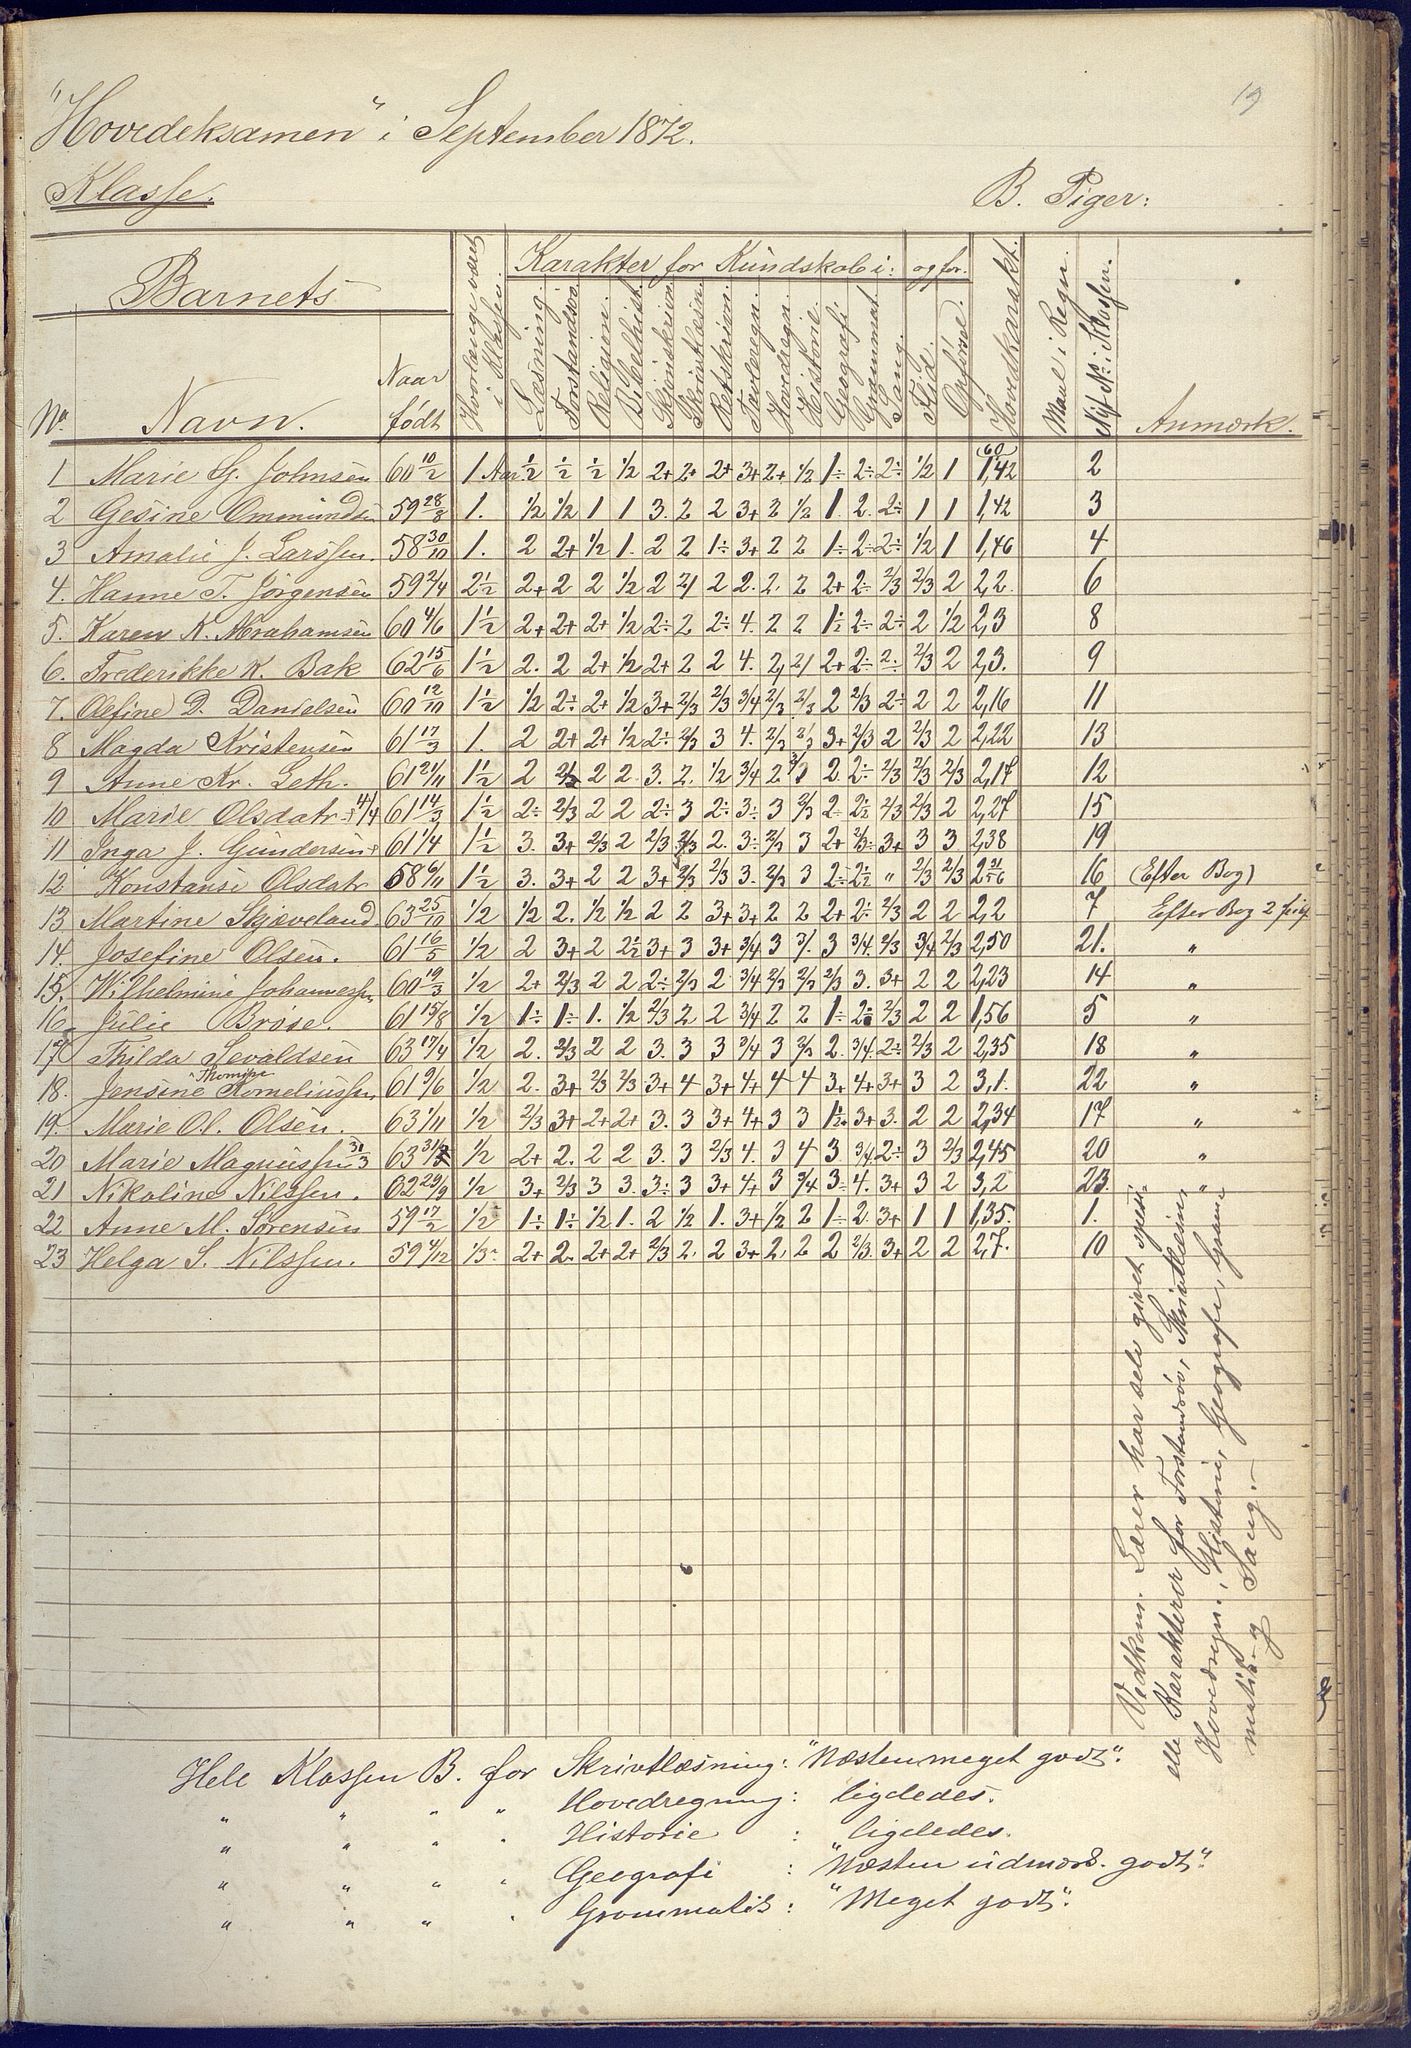 19
"Hovedeksamen" i September 1872.
Klasse. B. Piger:
Barnets Hvorlænge været i Klassen. Karakter for Kundskab i: og for. Hovedkarakt. Maal i Regn. Nyt No. i Klassen.
No. Navn. Naar født Læsning. Forstandsøv. Religion. Bibelhist. Skjönskrivn. Skrivtlæsn. Retskrivn. Tavleregn. Hovedregn. Historie. Geografi Grammat. Sang. Flid. Opförsel. Anmærk.
1 Marie G. Johnsen 60 10/2 1 Aar 1/2 1/2 1/2 1/2 2+ 2+ 2+ 3+ 2+ 1/2 1÷ 2÷ 2÷ 1/2 1 1,42 2
2 Gesine Ommundsen 59 28/8 1. 1/2 1/2 1 1 3. 2 2 3+ 2 1/2 1. 2. 2÷ 1 1 1,42 3
3 Amalie J. Larssen. 58 30/10 1. 2 2+ 1/2 1. 2 2 1÷ 3+ 2 2 1÷ 2÷ 2÷ 1/2 1 1,46 4
4. Hanne T. Jörgensen 59 2/4 2 1/2 2+ 2 2 1/2 2 2/1 2 2. 2. 2 2+ 2÷ 2/3 2/3 2 2,2. 6
5. Karen K. Abrahamsen 60 4/6 1 1/2 2+ 2+ 2+ 1/2 2÷ 2 2÷ 4. 2 2 1 1/2 2÷ 2÷ 2 1/2 2,3 8
6. Frederikke K. Bak 62 15/6 1 1/2 2. 2 2+ 1/2 2+ 2 2 4. 2, 2/1 2+ 2÷ 2÷ 2/3 2 2,3. 9
7. Olefine D. Danielsen 60 12/10 1 1/2 1/2 2÷ 2+ 1/2 3+ 2/3 2/3 3/4 2/3 2/3 2 2/3 2÷ 2 2 2,16 11
8 Magda Kristensen 61 17/3 1. 2 2+ 2+ 1/2 2÷ 2/3 3 4. 2/3 2/3 3+ 2/3 2 2/3 2 2,22 13
9 Anne Kr. Leth. 61 21/11 1 1/2 2 2/3 2 2. 3. 2. 1/2 3/4 2 2/1 2. 2÷ 2/3 2/3 2/3 2,17 12
10 Marie Olsdatr 4/4 61 14/3 1 1/2 2÷ 2/3 2 2 2÷ 3 2÷ 3÷ 3 2/3 2÷ 2 1/2 2/3 2/3 2 2,27 15
11 Inga J. Gundersen 61 1/4 1 1/2 3. 3+ 2/3 2 2/3 2/3 2. 3÷ 2/3 3 2+ 2/3 3+ 3 3 2,38 19
12 Konstansi Olsdatr 58 6/11 1 1/2 3. 3+ 2 2 3+ 2/3 2/3 3. 2/3 3 2÷ 2 1/2 " 2/3 2/3 16 (Efter Bog)
13 Martine Skjæveland 63 25/10 1/2 1/2 2. 1/2 1/2 2 2 3+ 3+ 2 2 2+ 2÷ 2/3 2 2 2,2 7 Efter Bog 2
14. Josefine Olsen. 61 16/5 1/2 2 3+ 2 2 1/2 3+ 3 3+ 3/4 3 3 3/4 2/3 3/4 2/3 2,50 21. "
15. Wilhelmine Johannessen 60 19/3 1/2 2+ 2/3 2 2 2÷ 2/3 2 3/4 2/3 2/3 2/3 3. 3+ 2 2 2,23 14 "
16 Julie Brose. 61 15/8 1/2 1÷ 1÷ 1. 1/2 2/3 2 2 3/4 2 2 1÷ 2÷ 2/3 2 2 1,56 5 "
17 Thilda Sevaldsen 63 17/4 1/2 2. 2/3 2 2 3. 3 3 3/4 3 2/3 2. 3/4. 2÷ 2/3 2 2,35 18 "
18. Jensine Thomine Korneliussen 61 9/6 1/2 2. 3+ 2/3 2/3 3+ 4 3+ 4+ 4 4 3+ 4+ 3+ 3 2 3,1. 22 "
19. Marie Ol. Olsen. 63 1/11 1/2 2/3 3+ 2+ 2+ 3. 3 3+ 4+ 3 3 1 1/2 3+ 3. 2 2 2,34 17 "
20 Marie Magnussen 31/3 63 1/2 2+ 2. 2 2 3. 3 2/3 4. 3 4 3. 3/4. 2÷ 3 2/3 2,45 20 "
21 Nikoline Nilssen. 62 29/9 1/2 3+ 2/3 3 3. 3÷ 3 3+ 4+ 3 3/4 3÷ 4. 3+ 3 2 3,2 23. "
22 Anne M. Sörensen 59 17/2 1/2 1÷ 1÷ 1/2 1. 2 1/2 1. 3+ 1/2 2 1÷ 2. 3+ 1 1 1,35. 1.
23 Helga S. Nilssen. 59 4/12 1/3 2+ 2. 2+ 2+ 2/3 2. 2 3+ 2. 2 2 2/3. 3+ 2 2 2,7. 10
Vedkom. Lærer har selv givet spesi-
elle Karakterer for Forstandsöv, Skrivtlæsn
Hovedregn., Historie, Geografi, Gram-
matik og Sang.
Hele Klassen B. for Skrivtlæsning: "Næsten meget godt".
" " " " Hovedregning: ligeledes.
" " " " Historie : ligeledes.
" " " " Geografi : "Næsten udmærk. godt".
" " " " Grammatik : "Meget godt".